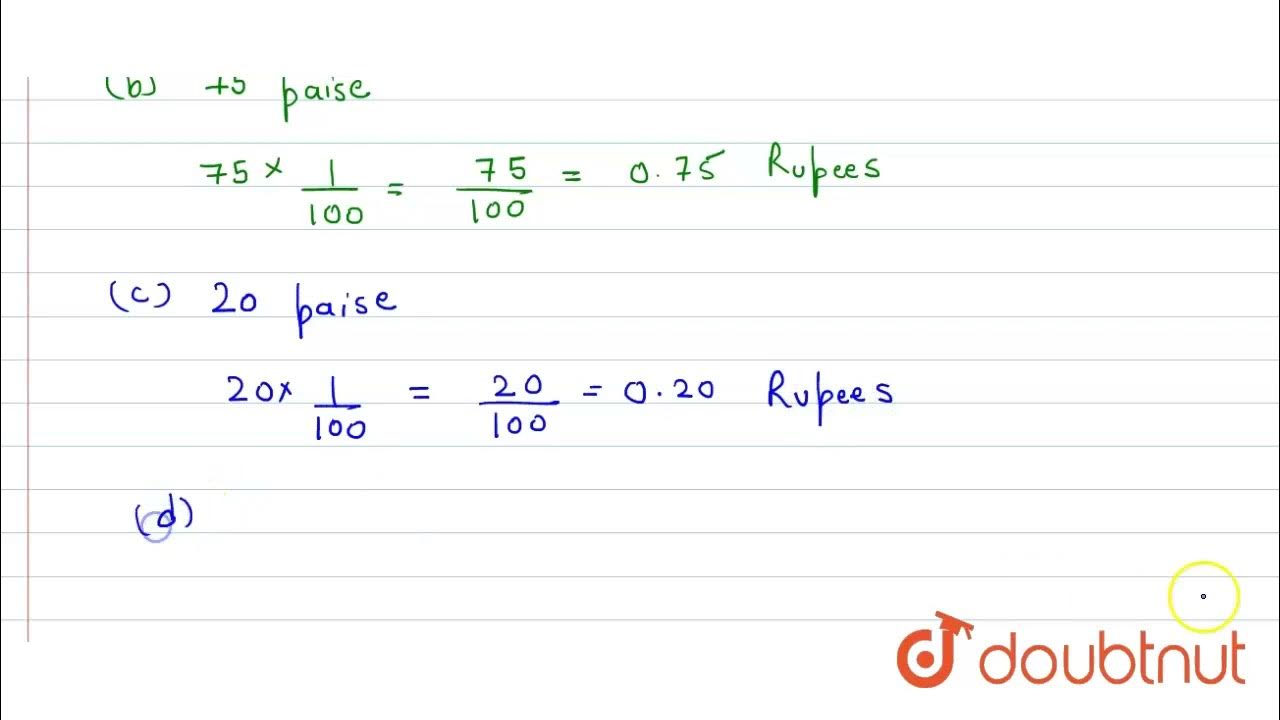 (b) 75 paise
75 × 1/100 = 75/100 = 0.75 Rupees
(c) 20 paise
20 × 1/100 = 20/100 = 0.20 Rupees
(d)
doubtnut